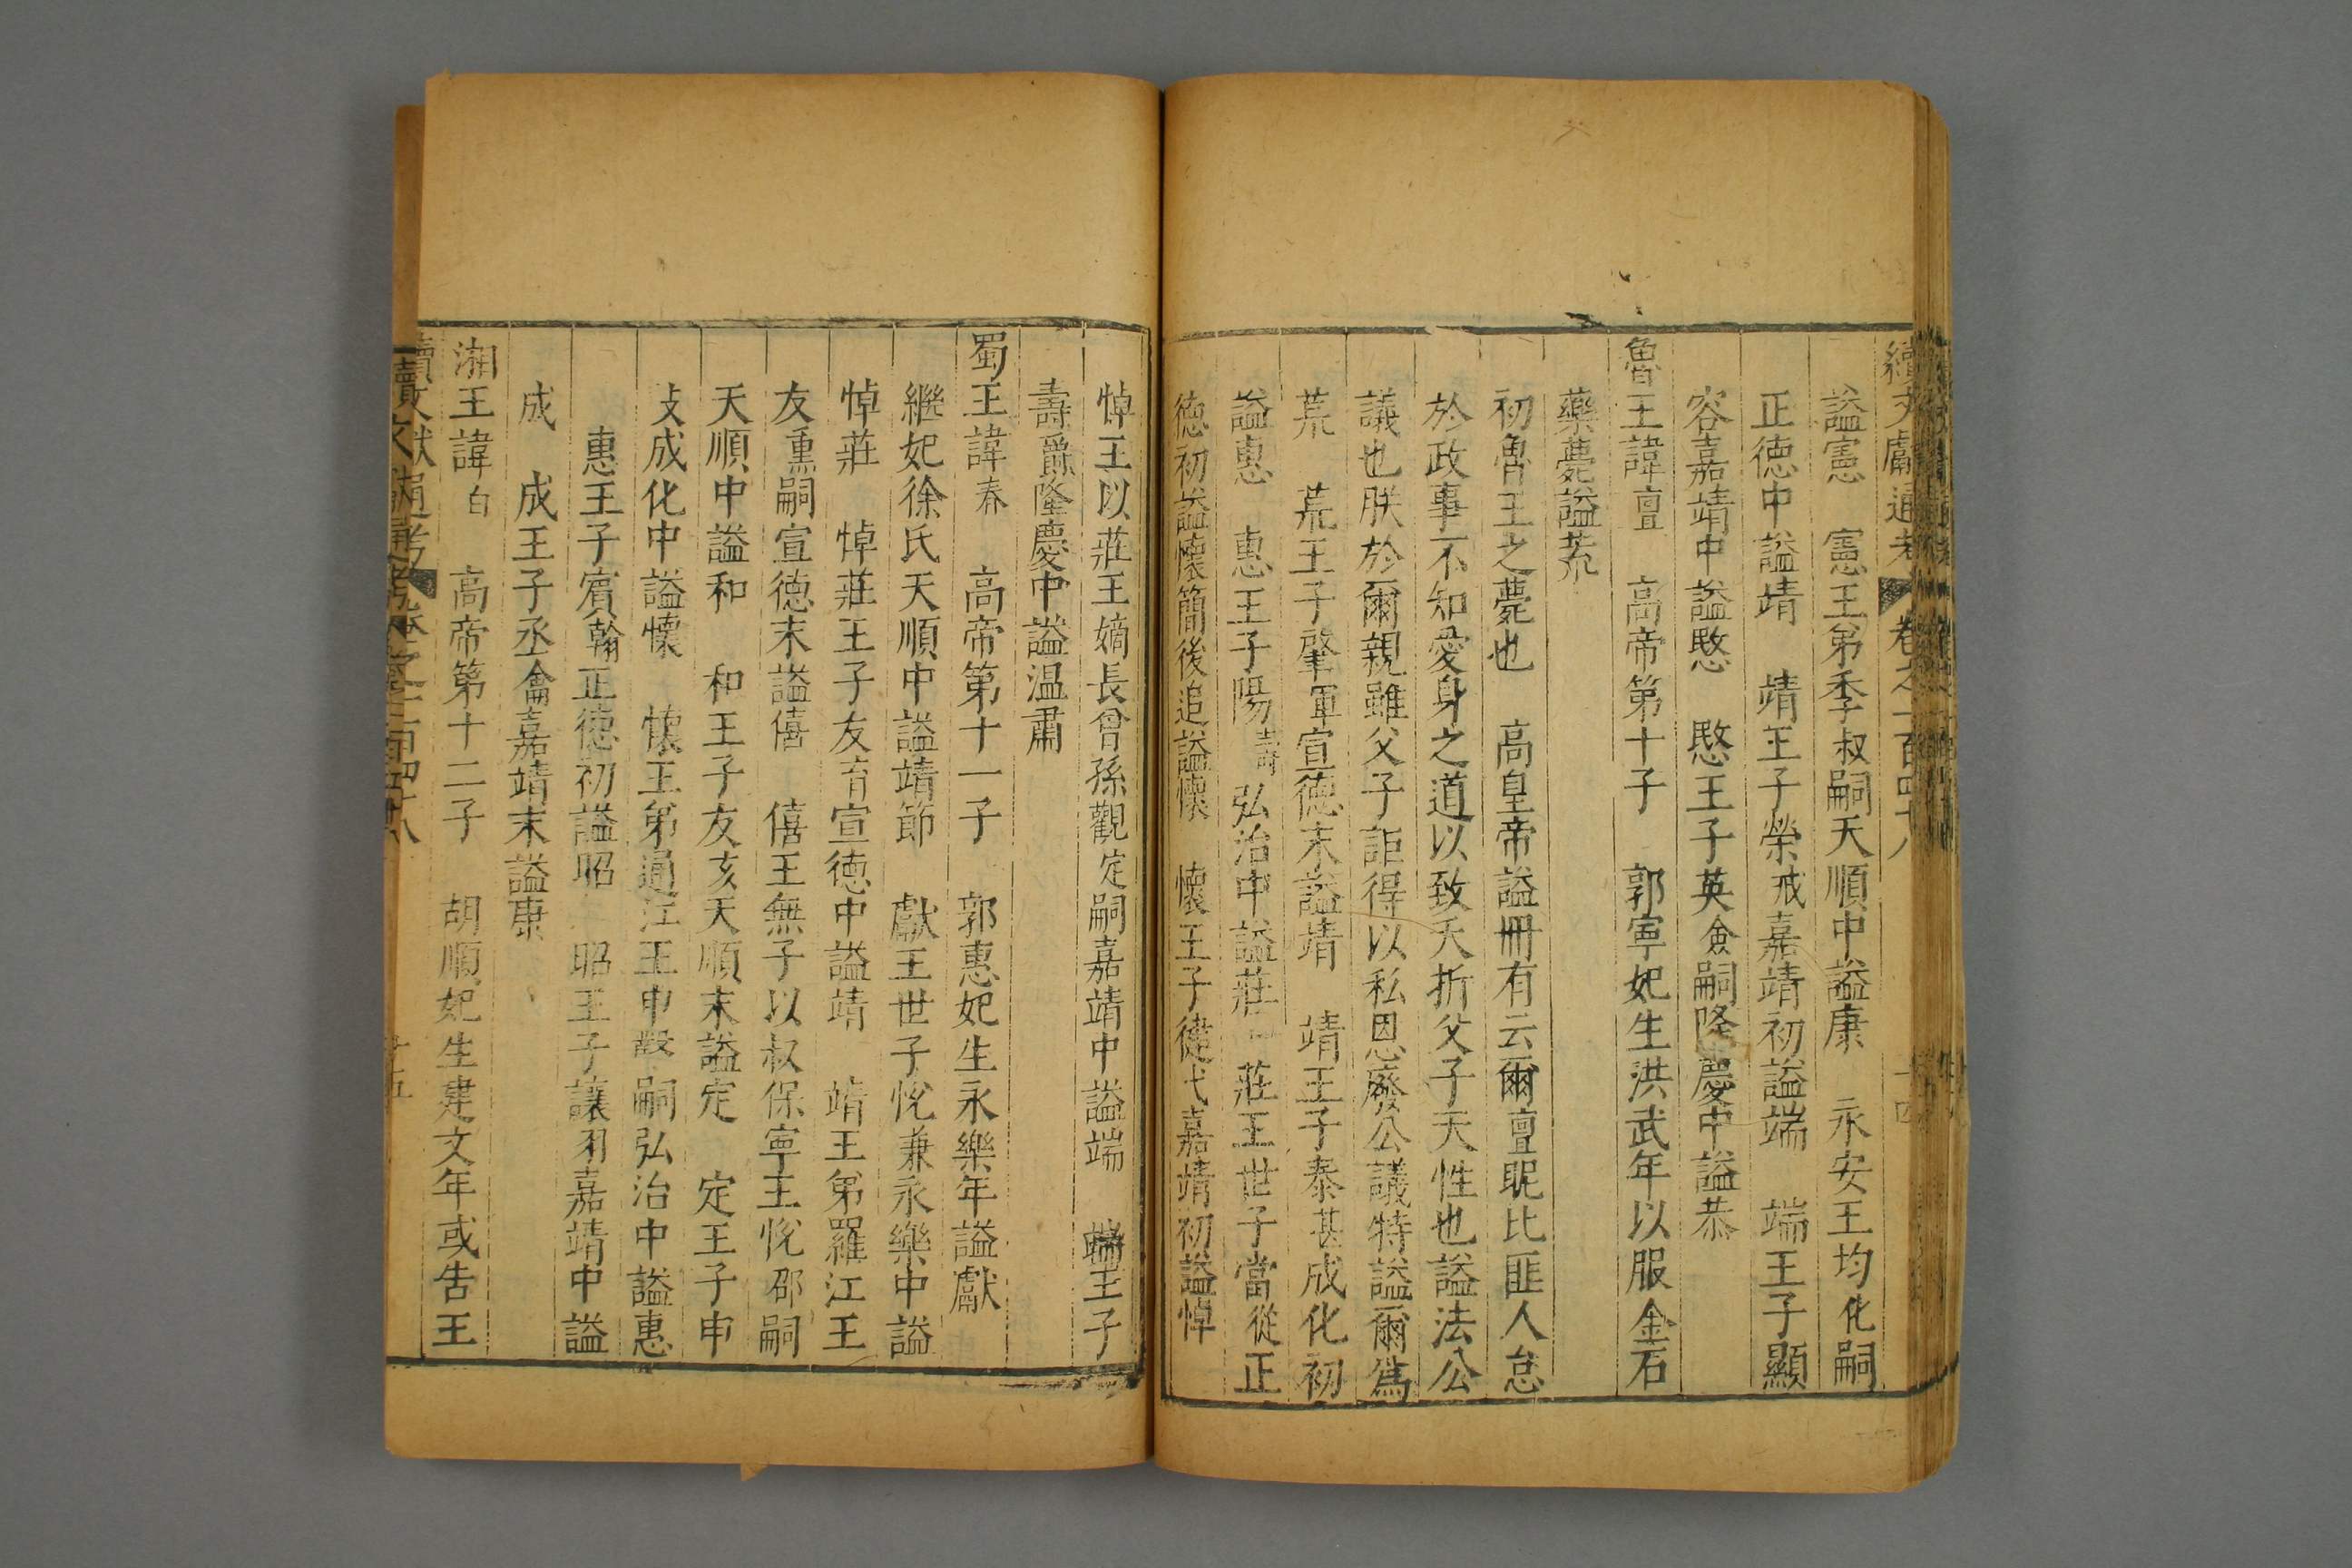 續文獻通考 卷之一百四十八 十四
謚憲 憲王弟季叔嗣天順中謚康 永安王均化嗣
正德中謚靖 靖王子榮㳦嘉靖初謚端 端王子顯
容嘉靖中謚愍 愍王子英㷿嗣隆慶中謚恭
魯王諱亶 高帝第十子 郭寧妃生洪武年以服金石
藥薨謚荒
初魯王之薨也 高皇帝謚冊有云爾亶昵比匪人怠
於政事不知愛身之道以致夭折父子天性也謚法公
議也朕於爾親雖父子詎得以私恩廢公議特謚爾爲
荒 荒王子肇軍宣德末謚靖 靖王子泰甚成化初
謚惠 惠王子陽壽弘治中謚莊 莊王世子當從正
德初謚懷簡後追謚懷 懷王子健弋嘉靖初謚悼
悼王以莊王嫡長曾孫觀定嗣嘉靖中謚端 端王子
壽爵隆慶中謚温肅
蜀王諱春 高帝第十一子 郭惠妃生永樂年謚獻
繼妃徐氏天順中謚靖節 獻王世子恱兼永樂中謚
悼莊 悼莊王子友育宣德中謚靖 靖王弟羅江王
友熏嗣宣德末謚僖 僖王無子以叔保寧王恱邵嗣
天順中謚和 和王子友亥天順末謚定 定王子申
攴成化中謚懷 懷王弟通江王申嗣弘治中謚惠
惠王子賓翰正德初謚昭 昭王子讓羽嘉靖中謚
成 成王子丞龠嘉靖末謚康
湘王諱白 高帝第十二子 胡順妃生建文年或告王
續文獻通考 卷之一百四十八 十五